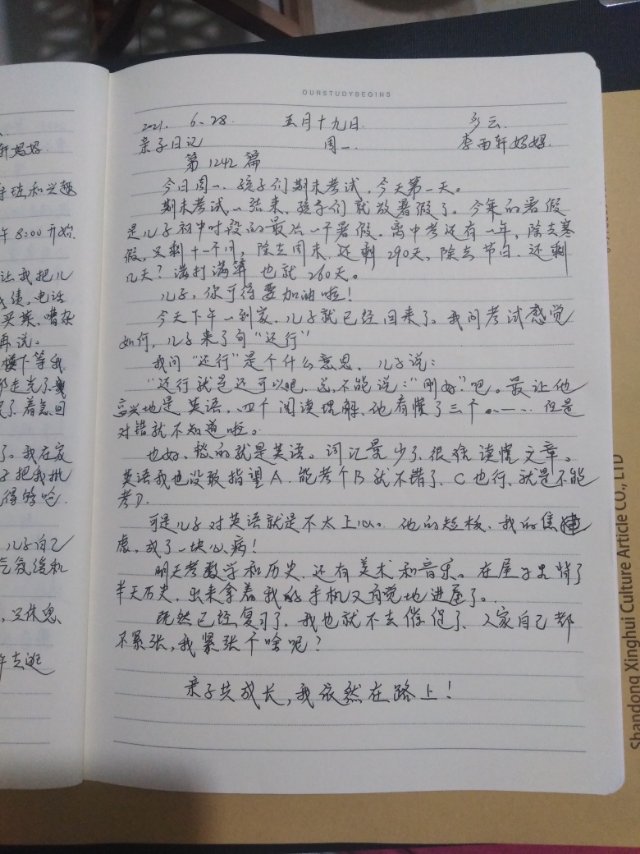 OURSTUDYBEGINS
2021. 6.28. 五月十九日. 多云.
亲子日记 周一. 李雨轩妈妈.
第1242篇
今日周一. 孩子们期末考试, 今天第一天。
期末考试一结束, 孩子们就放暑假了. 今年的暑假
是儿子初中时段的最后一个暑假。离中考还有一年, 除去寒
假, 又剩十一个月, 除去周末, 还剩290天, 除去节日, 还剩
几天? 满打满算也就260天。
儿子, 你可得要加油啦!
今天下午一到家, 儿子就已经回来了. 我问考试感觉
如何, 儿子来了句"还行"
我问"还行"是个什么意思. 儿子说:
"还行就是还可以吧, 总不能说:"刚好"吧。最让他
高兴地是英语, 四个阅读理解, 他看懂了三个……. 但是
对错就不知道啦。
也好, 愁的就是英语。词汇量少了. 很难读懂文章。
英语我也没敢指望A. 能考个B就不错了, C也行, 就是不能
考D.
可是儿子对英语就是不太上心. 他的短板, 我的焦
虑, 成了一块心病!
明天考数学和历史, 还有美术和音乐。在屋子里背了
半天历史, 出来拿着我的手机又自觉地进屋了.
既然已经复习了. 我也就不去催促了. 人家自己都
不紧张, 我紧张个啥呢?
亲子共成长, 我依然在路上!
轩妈妈
午8:00开始.
让我把儿
电话
再说.
楼下等我
了. 我在家
子把我批
儿子自己
Shandong Xinghui Culture Article CO., LTD